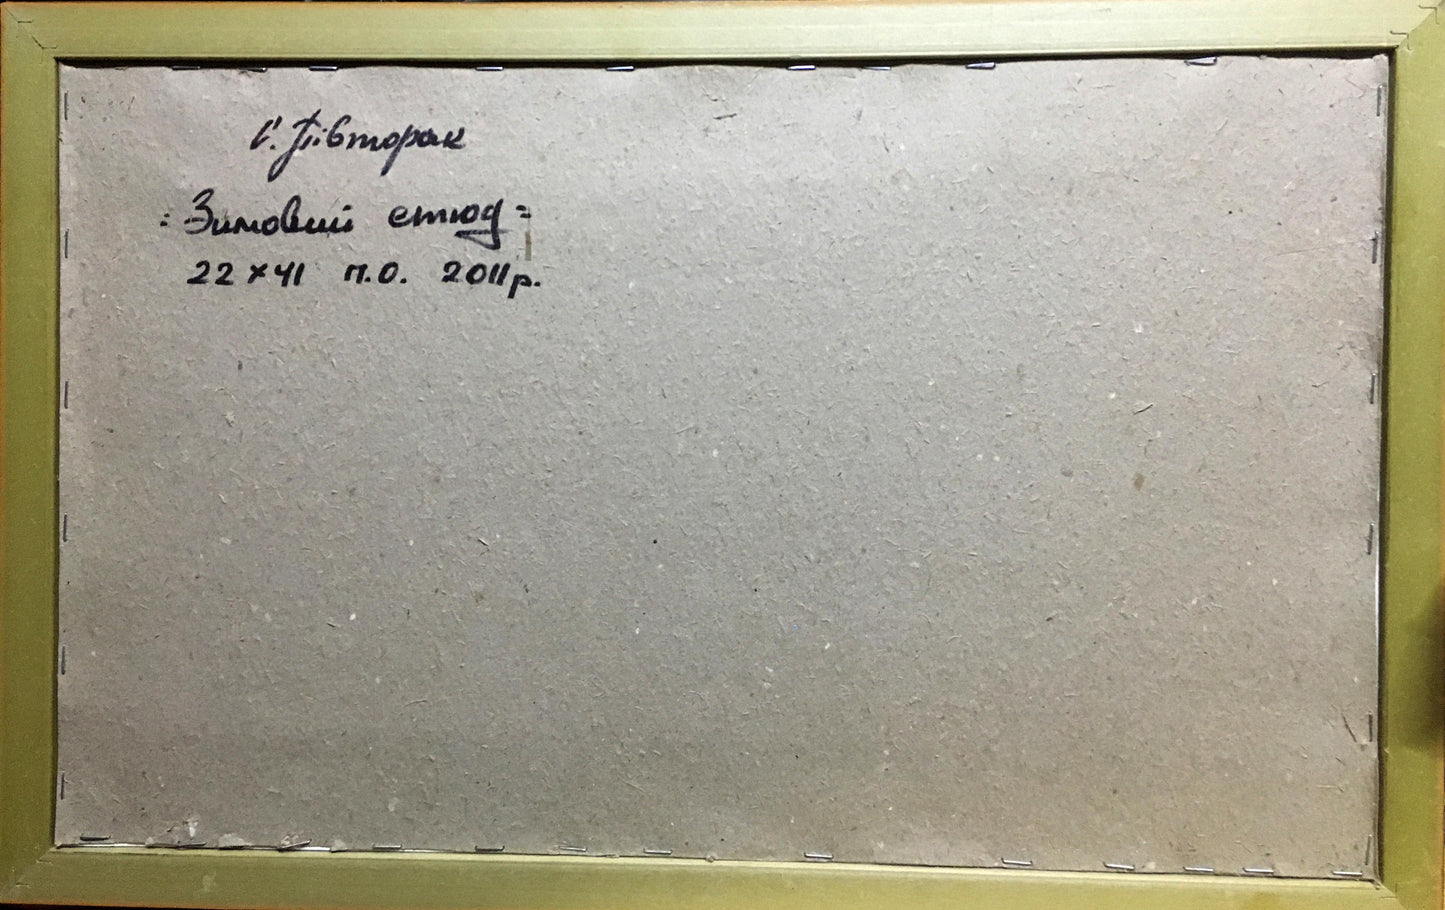 Є. Півторак
"Зимовий етюд"
22 x 41 п.о. 2011р.